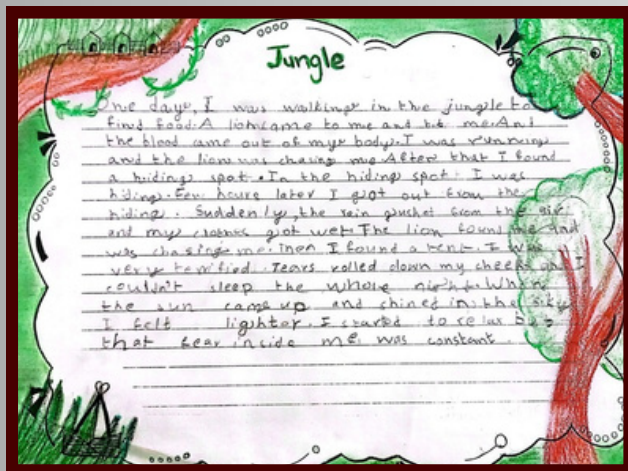 Jungle
One day, I was walking in the jungle to
find food. A lion came to me and bit me. And
the blood came out of my body. I was running
and the lion was chasing me. After that I found
a hiding spot. In the hiding spot I was
hiding. Few hours later I got out from the
hiding. Suddenly, the rain gushed from the
and my clothes got wet. The lion found me and
was chasing me. Then I found a tent. I was
very terrified. Tears rolled down my cheeks and I
couldn't sleep the whole night. When
the sun came up and shined in the sky
I felt lighter. I started to relax
that fear inside me was constant.